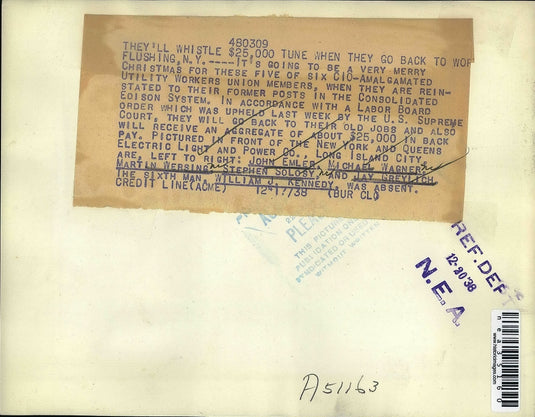 480309
THEY'LL WHISTLE $25,000 TUNE WHEN THEY GO BACK TO WOR
FLUSHING, N.Y.-----IT'S GOING TO BE A VERY MERRY
CHRISTMAS FOR THESE FIVE OF SIX CIO-AMALGAMATED
UTILITY WORKERS UNION MEMBERS, WHEN THEY ARE REIN-
STATED TO THEIR FORMER POSTS IN THE CONSOLIDATED
EDISON SYSTEM. IN ACCORDANCE WITH A LABOR BOARD
ORDER WHICH WAS UPHELD LAST WEEK BY THE U.S. SUPREME
COURT, THEY WILL GO BACK TO THEIR OLD JOBS AND ALSO
WILL RECEIVE AN AGGREGATE OF ABOUT $25,000 IN BACK
PAY. PICTURED IN FRONT OF THE NEW YORK AND QUEENS
ELECTRIC LIGHT AND POWER CO., LONG ISLAND CITY,
ARE, LEFT TO RIGHT: JOHN EMLER, MICHAEL WAGNER,
MARTIN WERSING, STEPHEN SOLOSY, AND JAY GREYLICH.
THE SIXTH MAN, WILLIAM J. KENNEDY, WAS ABSENT.
CREDIT LINE (ACME) 12-17/38 (BUR CL)
THIS PICTURE
PUBLICATION ON
SYNDICATED OR
WITHOUT WRITTEN
REF. DEPT
12-20 38
N.E.A.
A51163
www.historicimages.com